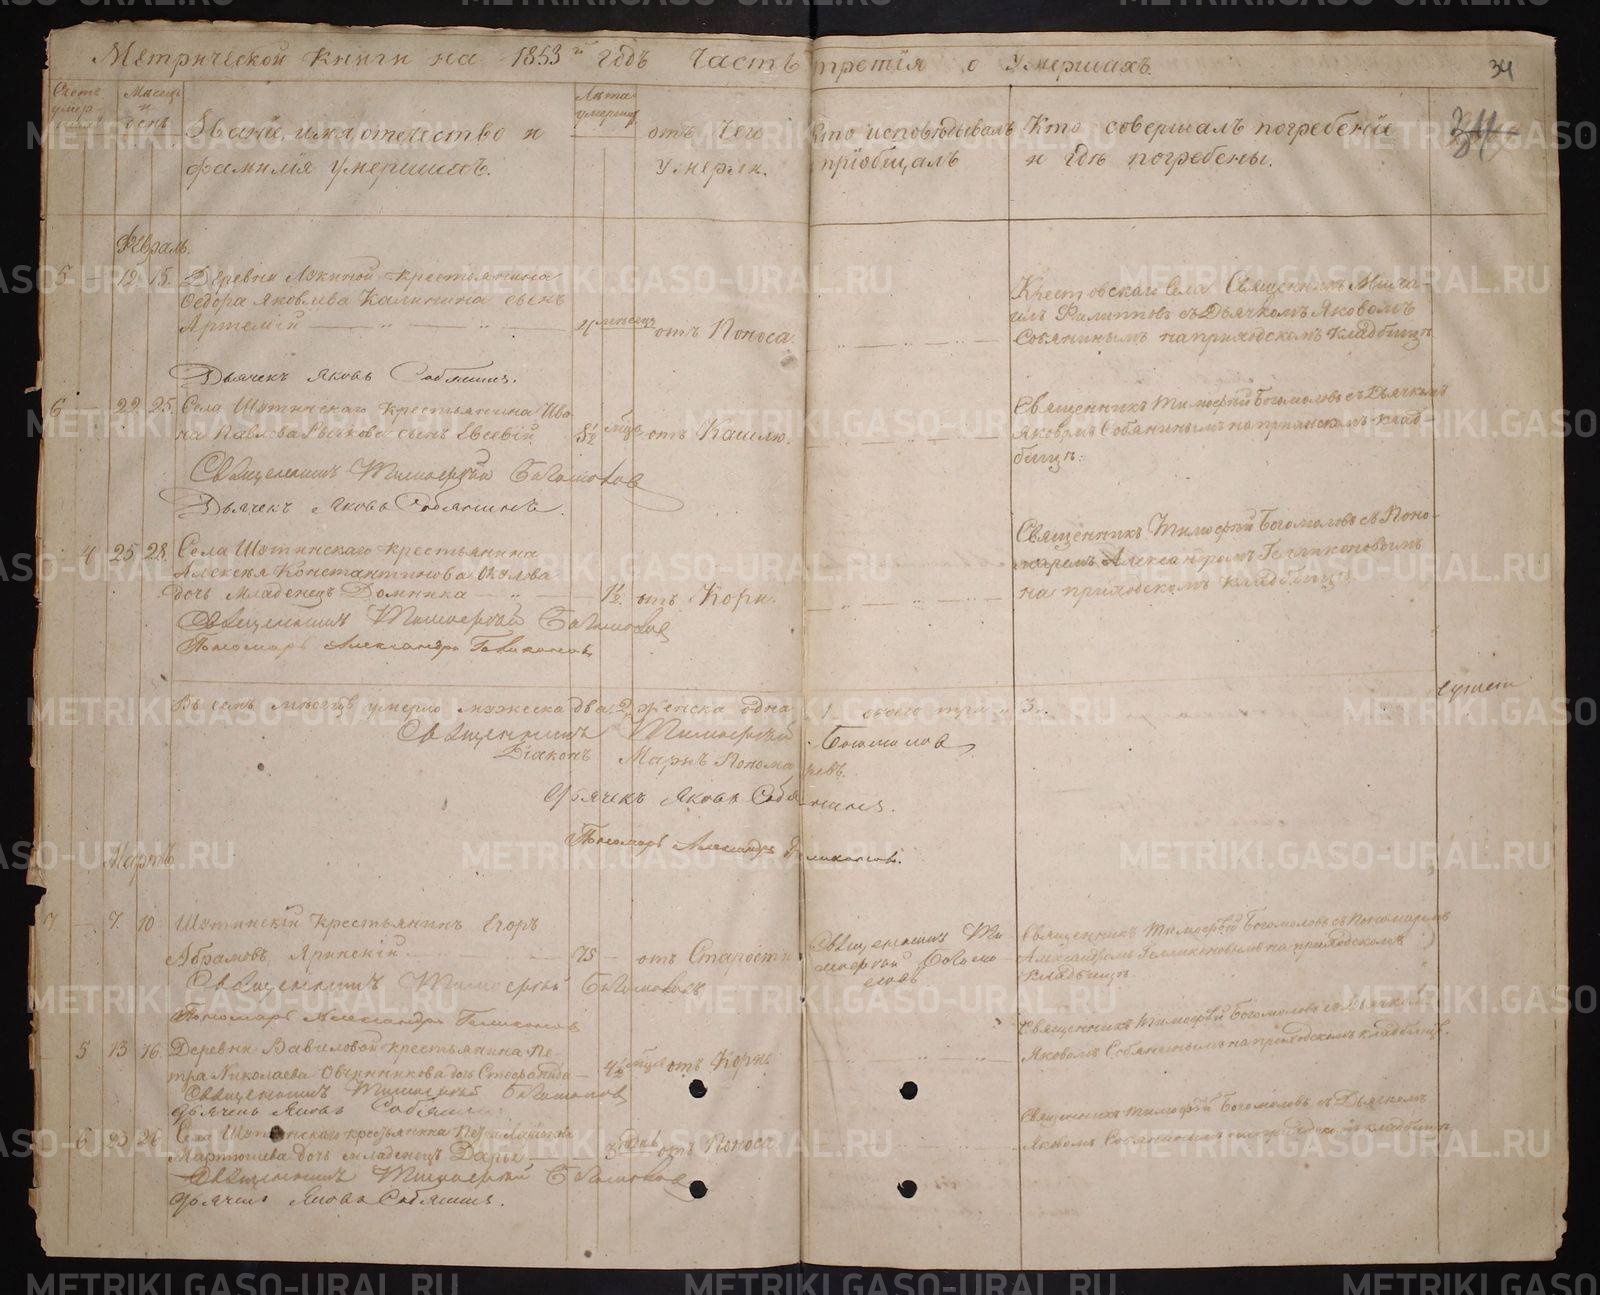 Метрической книги на 1853й годъ Часть третія о Умершихъ.
34
Счетъ умер-
Месецъ и день
Званіе, имя, отечество и фамилія умершихъ.
Лѣта умершихъ
отъ чего умерли.
Кто исповѣдывалъ пріобщалъ
Кто совершалъ погребеніе и гдѣ погребены.
34
Февраль.
5 — 12 15. Деревни крестьянина
Ѳедора Яковлева Калинина сынъ
Артемій 4 месецъ отъ Поноса.
Крестовскаго Села Священникъ Миха-
илъ Филиповъ съ Дьячкомъ Яковомъ
Собянинымъ на приходскомъ кладбищѣ
Дьячекъ Яковъ Собянинъ.
6 — 22 25. Села Шутинскаго крестьянина Ива-
на Павлова сынъ Евсевій 8½ мцъ отъ Кашлю.
Священникъ Тимофѣй Богомоловъ съ Дьячкомъ
Яковомъ Собянинымъ на приходскомъ клад-
бищѣ.
Священникъ Тимофѣй Богомоловъ
Дьячекъ Яковъ Собянинъ.
4 25 28. Села Шутинскаго крестьянина
Алексѣя Константинова
дочь Младенецъ Домника 1½ отъ Кори.
Священникъ Тимофѣй Богомоловъ съ Поно-
маремъ Александромъ Геликоновымъ
на приходскомъ кладбищѣ
Священникъ Тимофѣй Богомоловъ
Пономарь Александръ Геликоновъ
Въ семъ месецѣ умерло мужеска два 2, женска одна 1 обоего три 3.
Священникъ Тимофѣй Богомоловъ
Діаконъ Маркъ Пономаревъ.
Дьячекъ Яковъ Собянинъ.
Пономарь Александръ Геликоновъ.
Мартъ
7 — 7. 10 Шутинскій крестьянинъ Егоръ
Абрамовъ Яринскій 75 — отъ Старости
Священникъ Тимофѣй Богомоловъ
Священникъ Тимофѣй Богомоловъ съ Пономаремъ
Александромъ Геликоновымъ на приходскомъ
кладбищѣ
Священникъ Тимофѣй Богомоловъ
Пономарь Александръ Геликоновъ
5 13 16. Деревни Вавиловой крестьянина Пе-
тра Николаева Овчинникова дочь Стефанида 4½ мцъ отъ Кори.
Священникъ Тимофѣй Богомоловъ съ Дьячкомъ
Яковомъ Собянинымъ на приходскомъ кладбищѣ.
Священникъ Тимофѣй Богомоловъ
Дьячекъ Яковъ Собянинъ
6 23 26 Села Шутинскаго крестьянина Петра
Мартюшева дочь младенецъ Дарья 3 отъ Поноса
Священникъ Тимофѣй Богомоловъ съ Дьячкомъ
Яковомъ Собянинымъ на приходскомъ кладбищѣ
Священникъ Тимофѣй Богомоловъ
Дьячекъ Яковъ Собянинъ.
METRIKI.GASO-URAL.RU